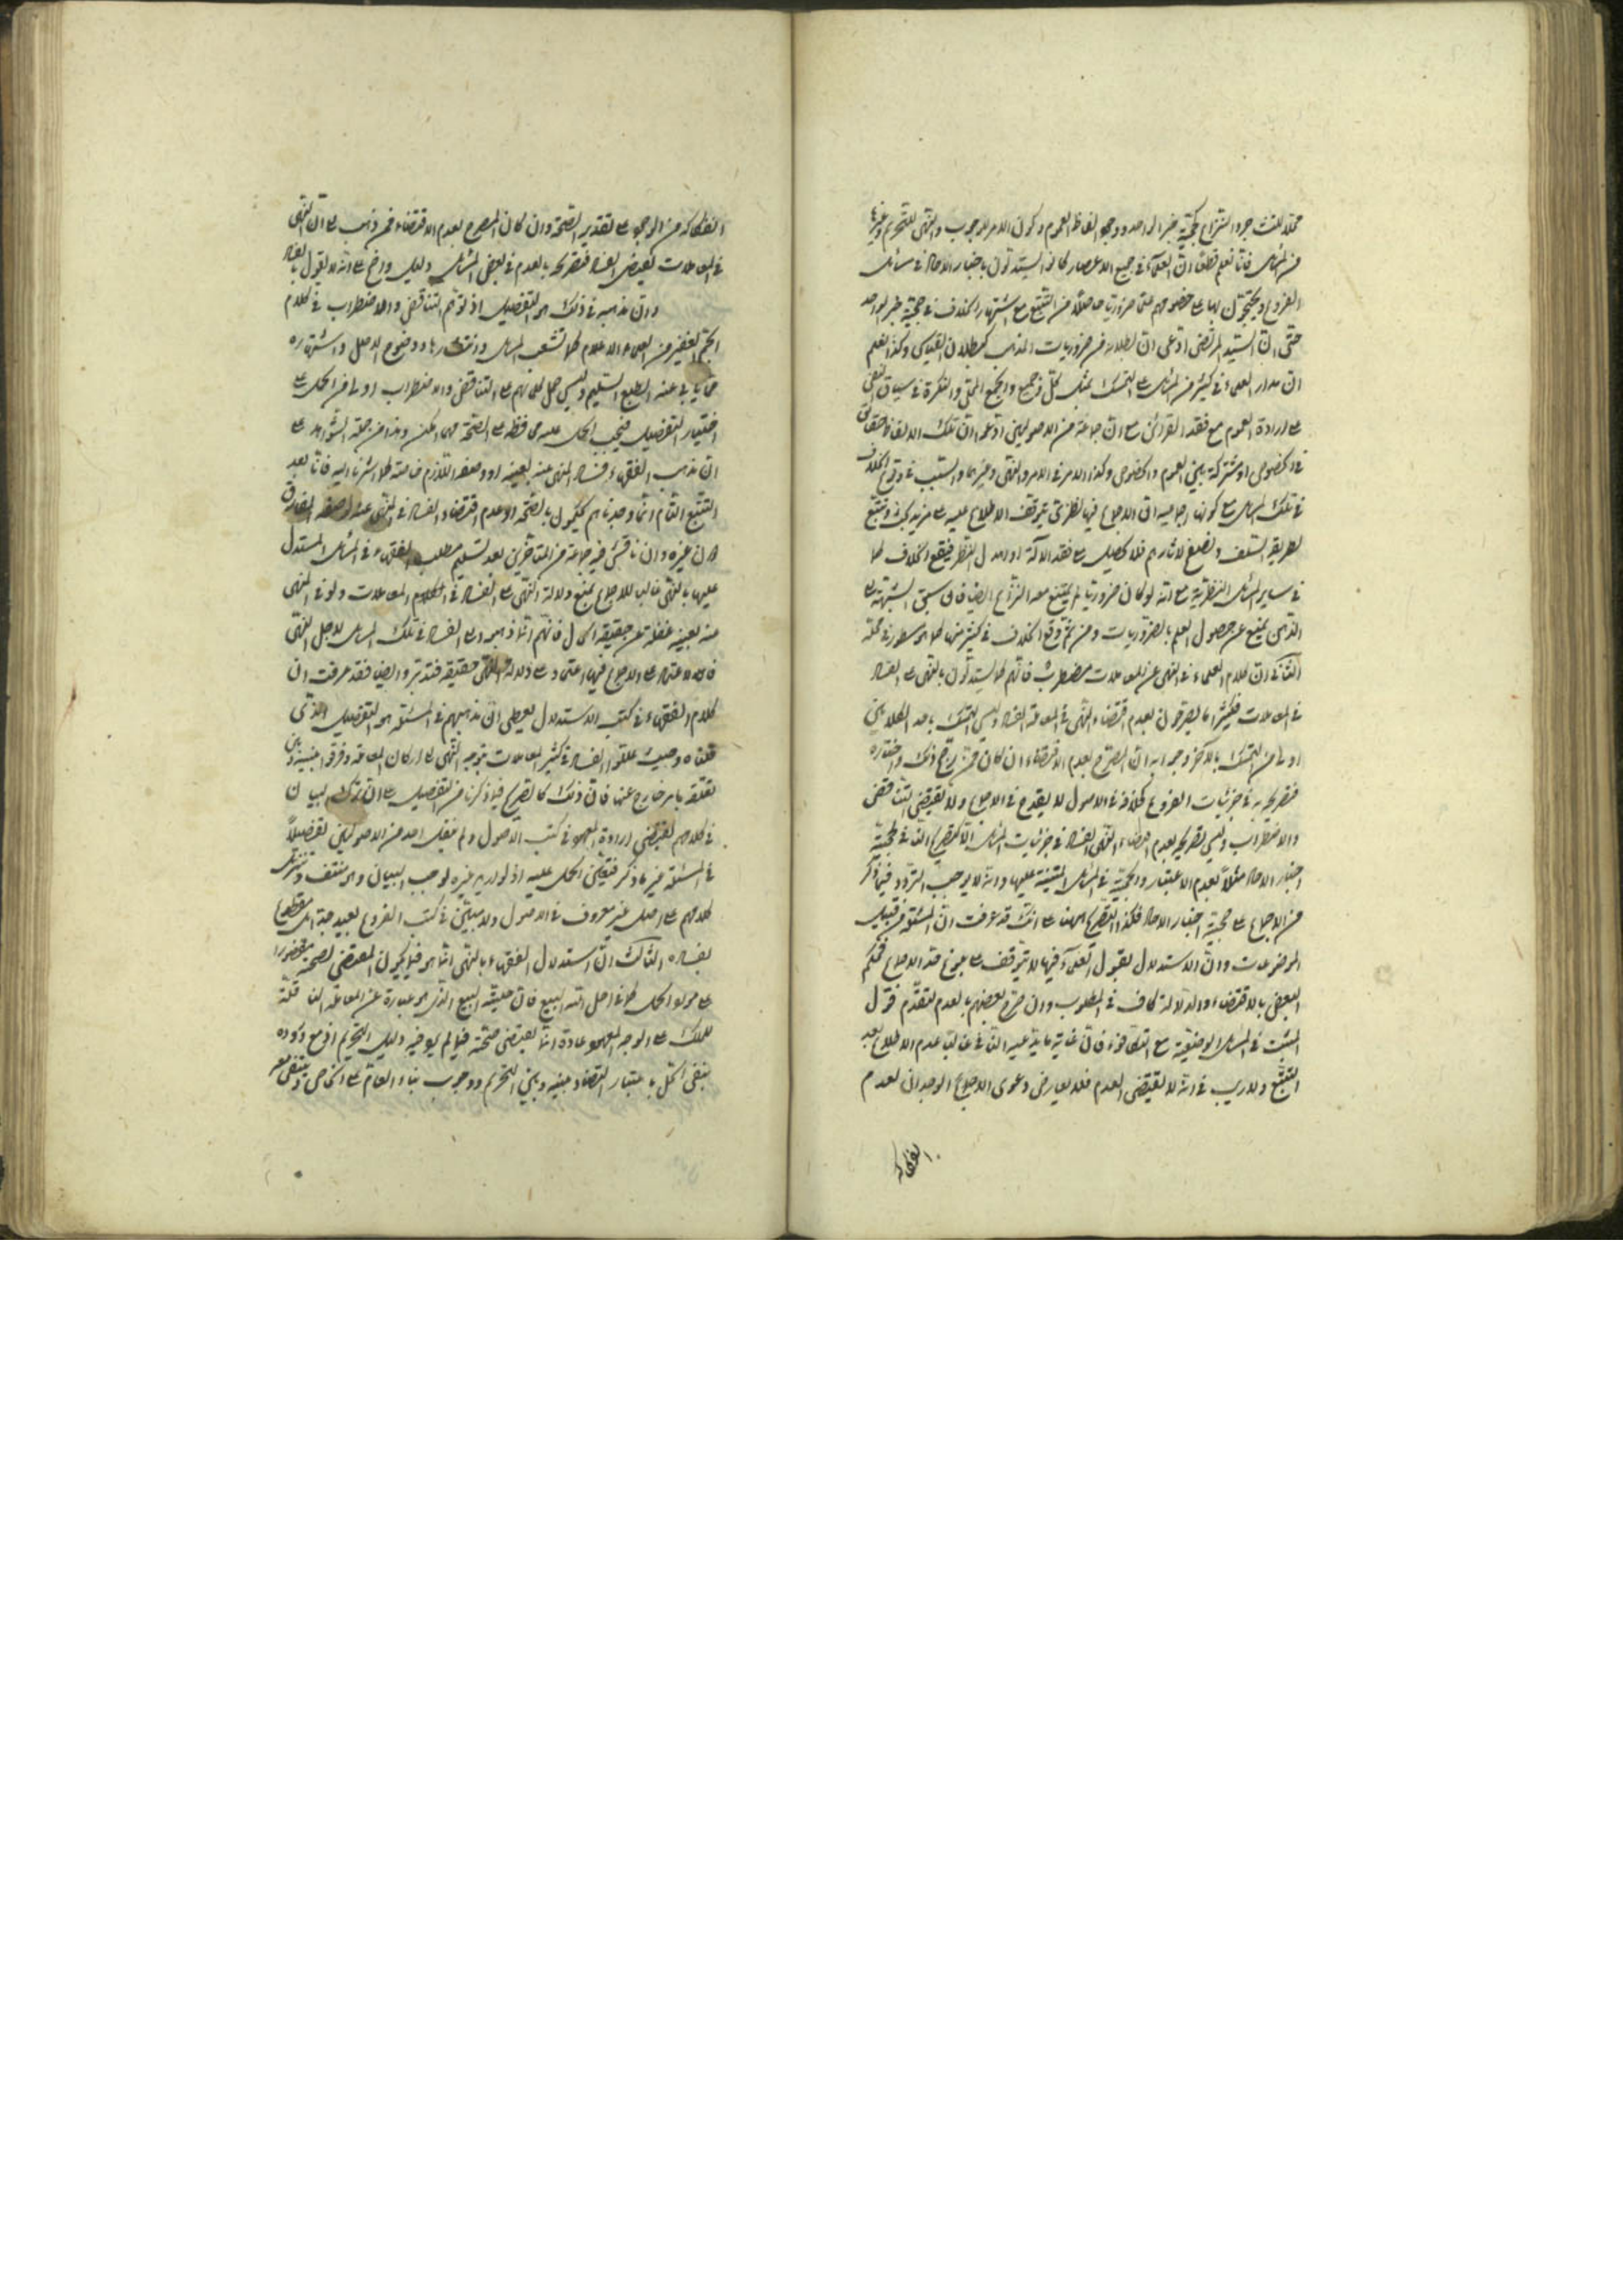 محلا للتشاجر والنزاع كحجية خبر الواحد ووجود الفاظ العموم وكون الامر للوجوب والنهى للتحريم وغيرها
من المسائل فانا نعلم قطعا ان العلماء فى جميع الاعصار كانوا يستدلون باخبار الاحاد فى مسائل
الفروع ويحتجون بها على خصومهم علما ضروريا حاصلا من التتبع مع اشتهار الخلاف فى حجية خبر الواحد
حتى ان السيد المرتضى ادعى ان بطلانه من ضروريات المذهب كبطلان القياس وكذا نعلم
ان مدار العلماء فى كثير من المسائل على التمسك بمثل كل وجميع والجمع المحلى والنكرة فى سياق النفى
على ارادة العموم مع فقد القرائن مع ان جماعة من الاصوليين ادعوا ان تلك الالفاظ حقائق
فى الخصوص او مشتركة بين العموم والخصوص وكذا الامر فى الامر والنهى وغيرهما والسبب فى وقوع الخلاف
فى تلك المسائل مع كونها اجماعية ان الاجماع فيها نظرى يتوقف الاطلاع عليه على مزيد بحث وتتبع
لطريقة السلف وتصفح لاثارهم فلا يحصل مع فقد الآلة او اهمال النظر فيقع الخلاف كما
فى ساير المسائل النظرية مع انه لو كان ضروريا لم يمتنع معه النزاع ايضا فان سبق الشبهة على
الذهن يمنع عن حصول العلم بالضروريات ومن ثم وقع الخلاف فى كثير منها كما هو مسطور فى محله
الثانى ان كلام العلماء فى النهى عن المعاملات مضطرب فانهم كما يستدلون بالنهى على الفساد
فى المعاملات فكثيرا ما يصرحون بعدم اقتضاء النهى فى المعاملة الفساد وليس التمسك باحد الكلامين
اولى من التمسك بالآخر وجوابه ان المصرح بعدم الاقتضاء ان كان ممن رجح ذلك واختاره
فتصريحه به فى جزئيات الفروع كخلافه فى الاصول لا يقدح فى الاجماع ولا يقتضى التناقض
والاضطراب وليس تصريحه بعدم اقتضاء النهى الفساد فى جزئيات المسائل الا كتصريح النافى لحجية
اخبار الاحاد مثلا بعدم الاعتبار والحجية فى المسائل المبتنية عليها وانه لا يوجب التردد فيما ذكر
من الاجماع على حجية اخبار الاحاد فكذا التصريح هيهنا على انك قد عرفت ان المسئلة من قبيل
الموضوعات وان الاستدلال بقول العلماء فيها لا يتوقف على بلوغ حد الاجماع فحكم
البعض بالاقتضاء والدلالة كاف فى المطلوب وان صرح بعضهم بالعدم لتقدم قول
المثبت فى المسائل الوضعية مع التكافؤ فان غاية ما يدعيه النافى غالبا عدم الاطلاع بعد
التتبع ولا ريب فى انه لا يقتضى العدم فلا يعارض دعوى الاجماع الوجدانى لعدم
انفكاكه
انفكاكه من الوجود على تقدير الصحة وان كان المصرح بعدم الاقتضاء ممن ذهب على ان النهى
فى المعاملات يقتضى الفساد فتصريحه بالعدم فى بعض المسائل دليل واضح على انه لا يقول بالفساد
وان مذهبه فى ذلك هو التفصيل اذ لو تم التناقض والاضطراب فى كلام
الجم الغفير من العلماء الاعلام كما تشعب المسائل وانتشارها ووضوح الاصل واشتهاره
مما يابى عنه الطبع السليم وليس حمل كلامهم على التناقض والاضطراب اولى من الحمل على
اختيار التفصيل فيجب الحمل عليه محافظة على الصحة مهما امكن وهذا من جملة الشواهد على
ان مذهب الفقهاء فساد المنهى عنه لعينه او وصفه اللازم خاصة كما اشرنا اليه فانا بعد
التتبع التام انما وجدناهم يحكمون بالصحة او عدم اقتضاء الفساد فى المنهى عنه لوصفه المفارق
دون غيره وان ناقش فيه جماعة من المتاخرين بعد تسليم مطلب الفقهاء فى المسائل المستدل
عليها بالنهى غالبا للاجماع بمنع دلالة النهى على الفساد فى المعاملات ولو فى المنهى
عنه لعينه غفلة عن حقيقة الحال فانهم انما ذهبوا على الفساد فى تلك المسائل لاجل النهى
فالاعتماد على الاجماع فيها اعتماد على دلالة النهى حقيقة فتدبر وايضا فقد عرفت ان
كلام الفقهاء فى كتب الاستدلال يعطى ان مذهبهم فى المسئلة هو التفصيل الذى
قلناه وحيث علقوا الفساد فى كثير المعاملات بتوجه النهى على اركان المعاملة وفرقوا بينه وبين
تعلقه بامر خارج عنها فان ذلك كالتصريح فيما ذكرنا من التفصيل على ان ترك البيان
فى كلامهم يقتضى ارادة المعهود فى كتب الاصول ولم ينقل احد من الاصوليين تفصيلا
فى المسئلة غير ما ذكر فيتعين الحمل عليه اذ لو اريد غيره لوجب البيان وهو منتف وتنزيل
كلامهم على اصل غير معروف فى الاصول ولا مبين فى كتب الفروع بعيد جدا بل مقطوع
بفساده الثالث ان استدلال الفقهاء بالنهى انما هو فيما يكون المقتضى لصحته مقصورا
على موارد الحل كما فى احل الله البيع فان حلية البيع الذى هو عبارة عن المعاملة الناقلة
للملك على الوجه المعهود عادة انما يقتضى صحته فيما لم يوجد فيه دليل التحريم اذ مع وروده
ينتفى الحل باعتبار التضاد بينه وبين التحريم ووجوب بناء العام على الخاص وينتفى معه